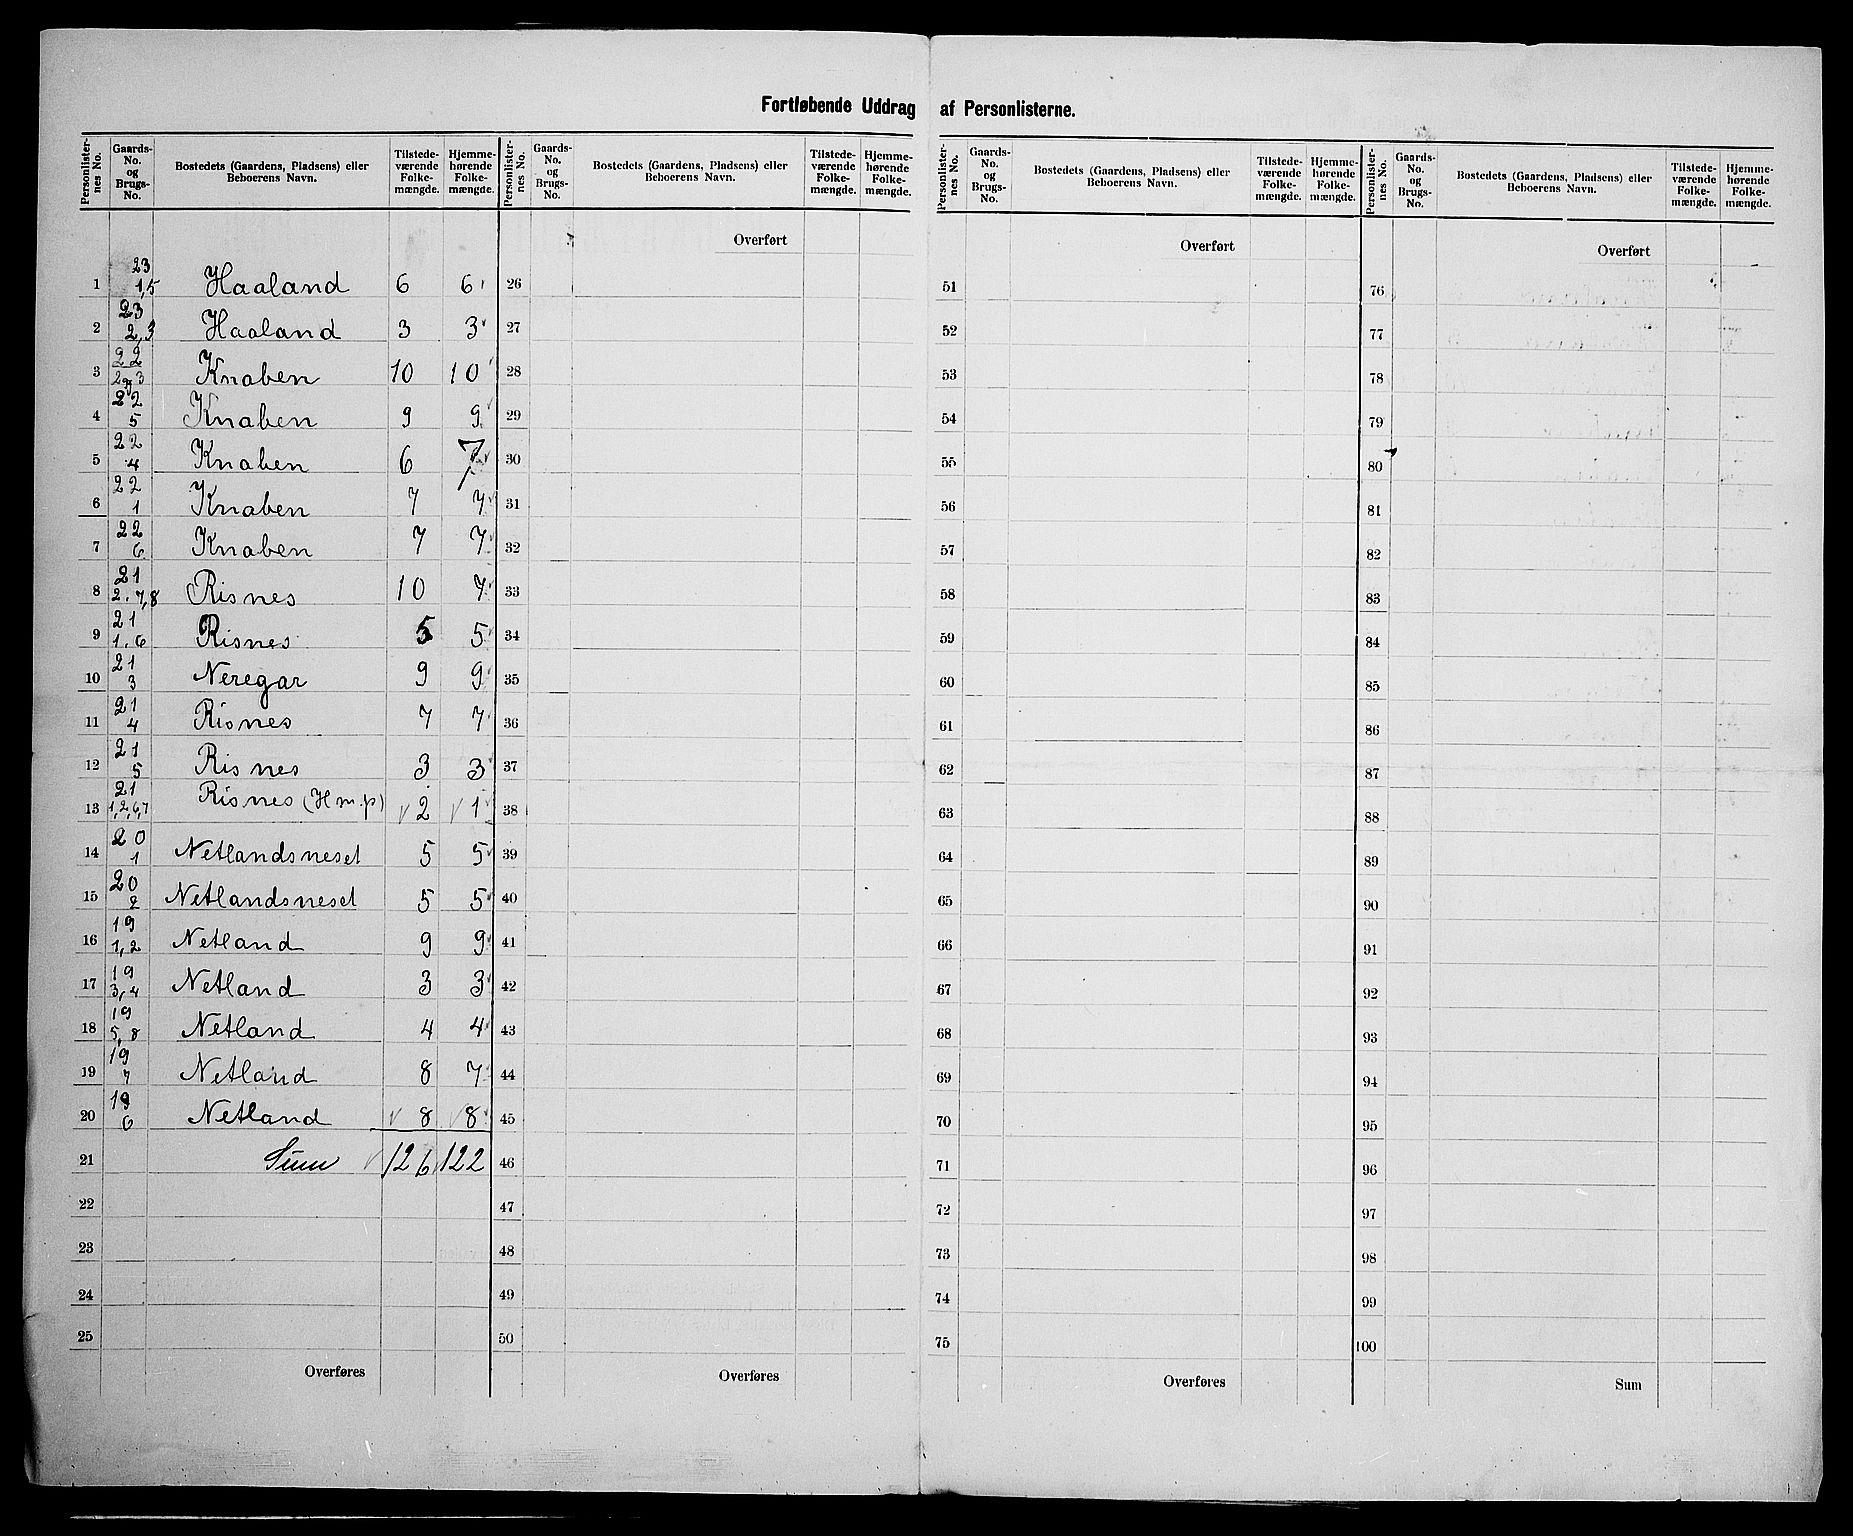 Fortløbende Uddrag af Personlisterne.
Personlister-nes No. | Gaards-No. og Brugs-No. | Bostedets (Gaardens, Pladsens) eller Beboerens Navn. | Tilstede-værende Folke-mængde. | Hjemme-hørende Folke-mængde. | Personlister-nes No. | Gaards-No. og Brugs-No. | Bostedets (Gaardens, Pladsens) eller Beboerens Navn. | Tilstede-værende Folke-mængde. | Hjemme-hørende Folke-mængde. | Personlister-nes No. | Gaards-No. og Brugs-No. | Bostedets (Gaardens, Pladsens) eller Beboerens Navn. | Tilstede-værende Folke-mængde. | Hjemme-hørende Folke-mængde. | Personlister-nes No. | Gaards-No. og Brugs-No. | Bostedets (Gaardens, Pladsens) eller Beboerens Navn. | Tilstede-værende Folke-mængde. | Hjemme-hørende Folke-mængde.
Overført Overført Overført
1 23 1,5 Haaland 6 6 26 51 76
2 23 2,3 Haaland 3 3 27 52 77
3 22 2 og 3 Knaben 10 10 28 53 78
4 22 5 Knaben 9 9 29 54 79
5 22 4 Knaben 6 7 30 55 80
6 22 1 Knaben 7 7 31 56 81
7 22 6 Knaben 7 7 32 57 82
8 21 2.7,8 Risnes 10 7 33 58 83
9 21 1.6 Risnes 5 5 34 59 84
10 21 3 Neregar 9 9 35 60 85
11 21 4 Risnes 7 7 36 61 86
12 21 5 Risnes 3 3 37 62 87
13 21 1,2,6,7 Risnes (Hm.p) 2 1 38 63 88
14 20 1 Netlandsneset 5 5 39 64 89
15 20 2 Netlandsneset 5 5 40 65 90
16 19 1,2 Netland 9 9 41 66 91
17 19 3,4 Netland 3 3 42 67 92
18 19 5,8 Netland 4 4 43 68 93
19 19 7 Netland 8 7 44 69 94
20 19 6 Netland 8 8 45 70 95
21 Sum 126 122 46 71 96
22 47 72 97
23 48 73 98
24 49 74 99
25 50 75 100
Overføres Overføres Overføres Sum